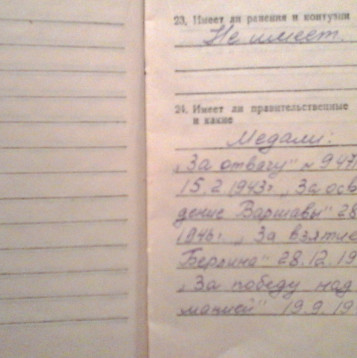 23. Имеет ли ранения и контузии
Не имеет.
24. Имеет ли правительственные
и какие
Медали:
„За отвагу" № 947
15.2.1943г. „За осво
дение Варшавы" 28
1946г. „За взятие
Берлина" 28.12.19
„За победу над
манией" 19.9.19